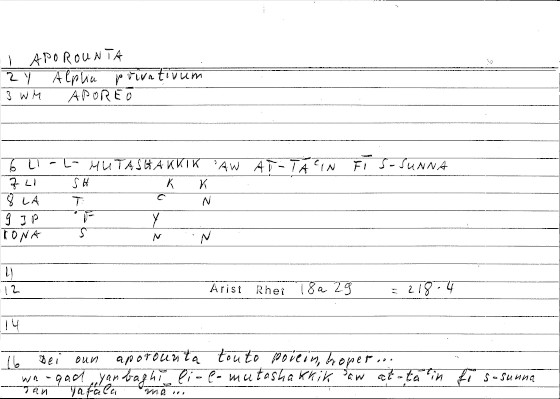 1 APOROUNTA
2 Y Alpha privativum
3 WM APOREŌ
6 LI-L-MUTASHAKKIK ʾAW AT-TĀʿIN FĪ S-SUNNA
7 LI SH K K
8 LA T ʿ N
9 JP F Y
10 NA S N N
11
12 Arist Rhet 18a 29 = 218.4
14
16 Dei oun aporounta touto poiein, hoper...
wa-qad yanbaghī li-l-mutashakkik ʾaw at-tāʿin fī s-sunna
ʾan yafʿala mā...